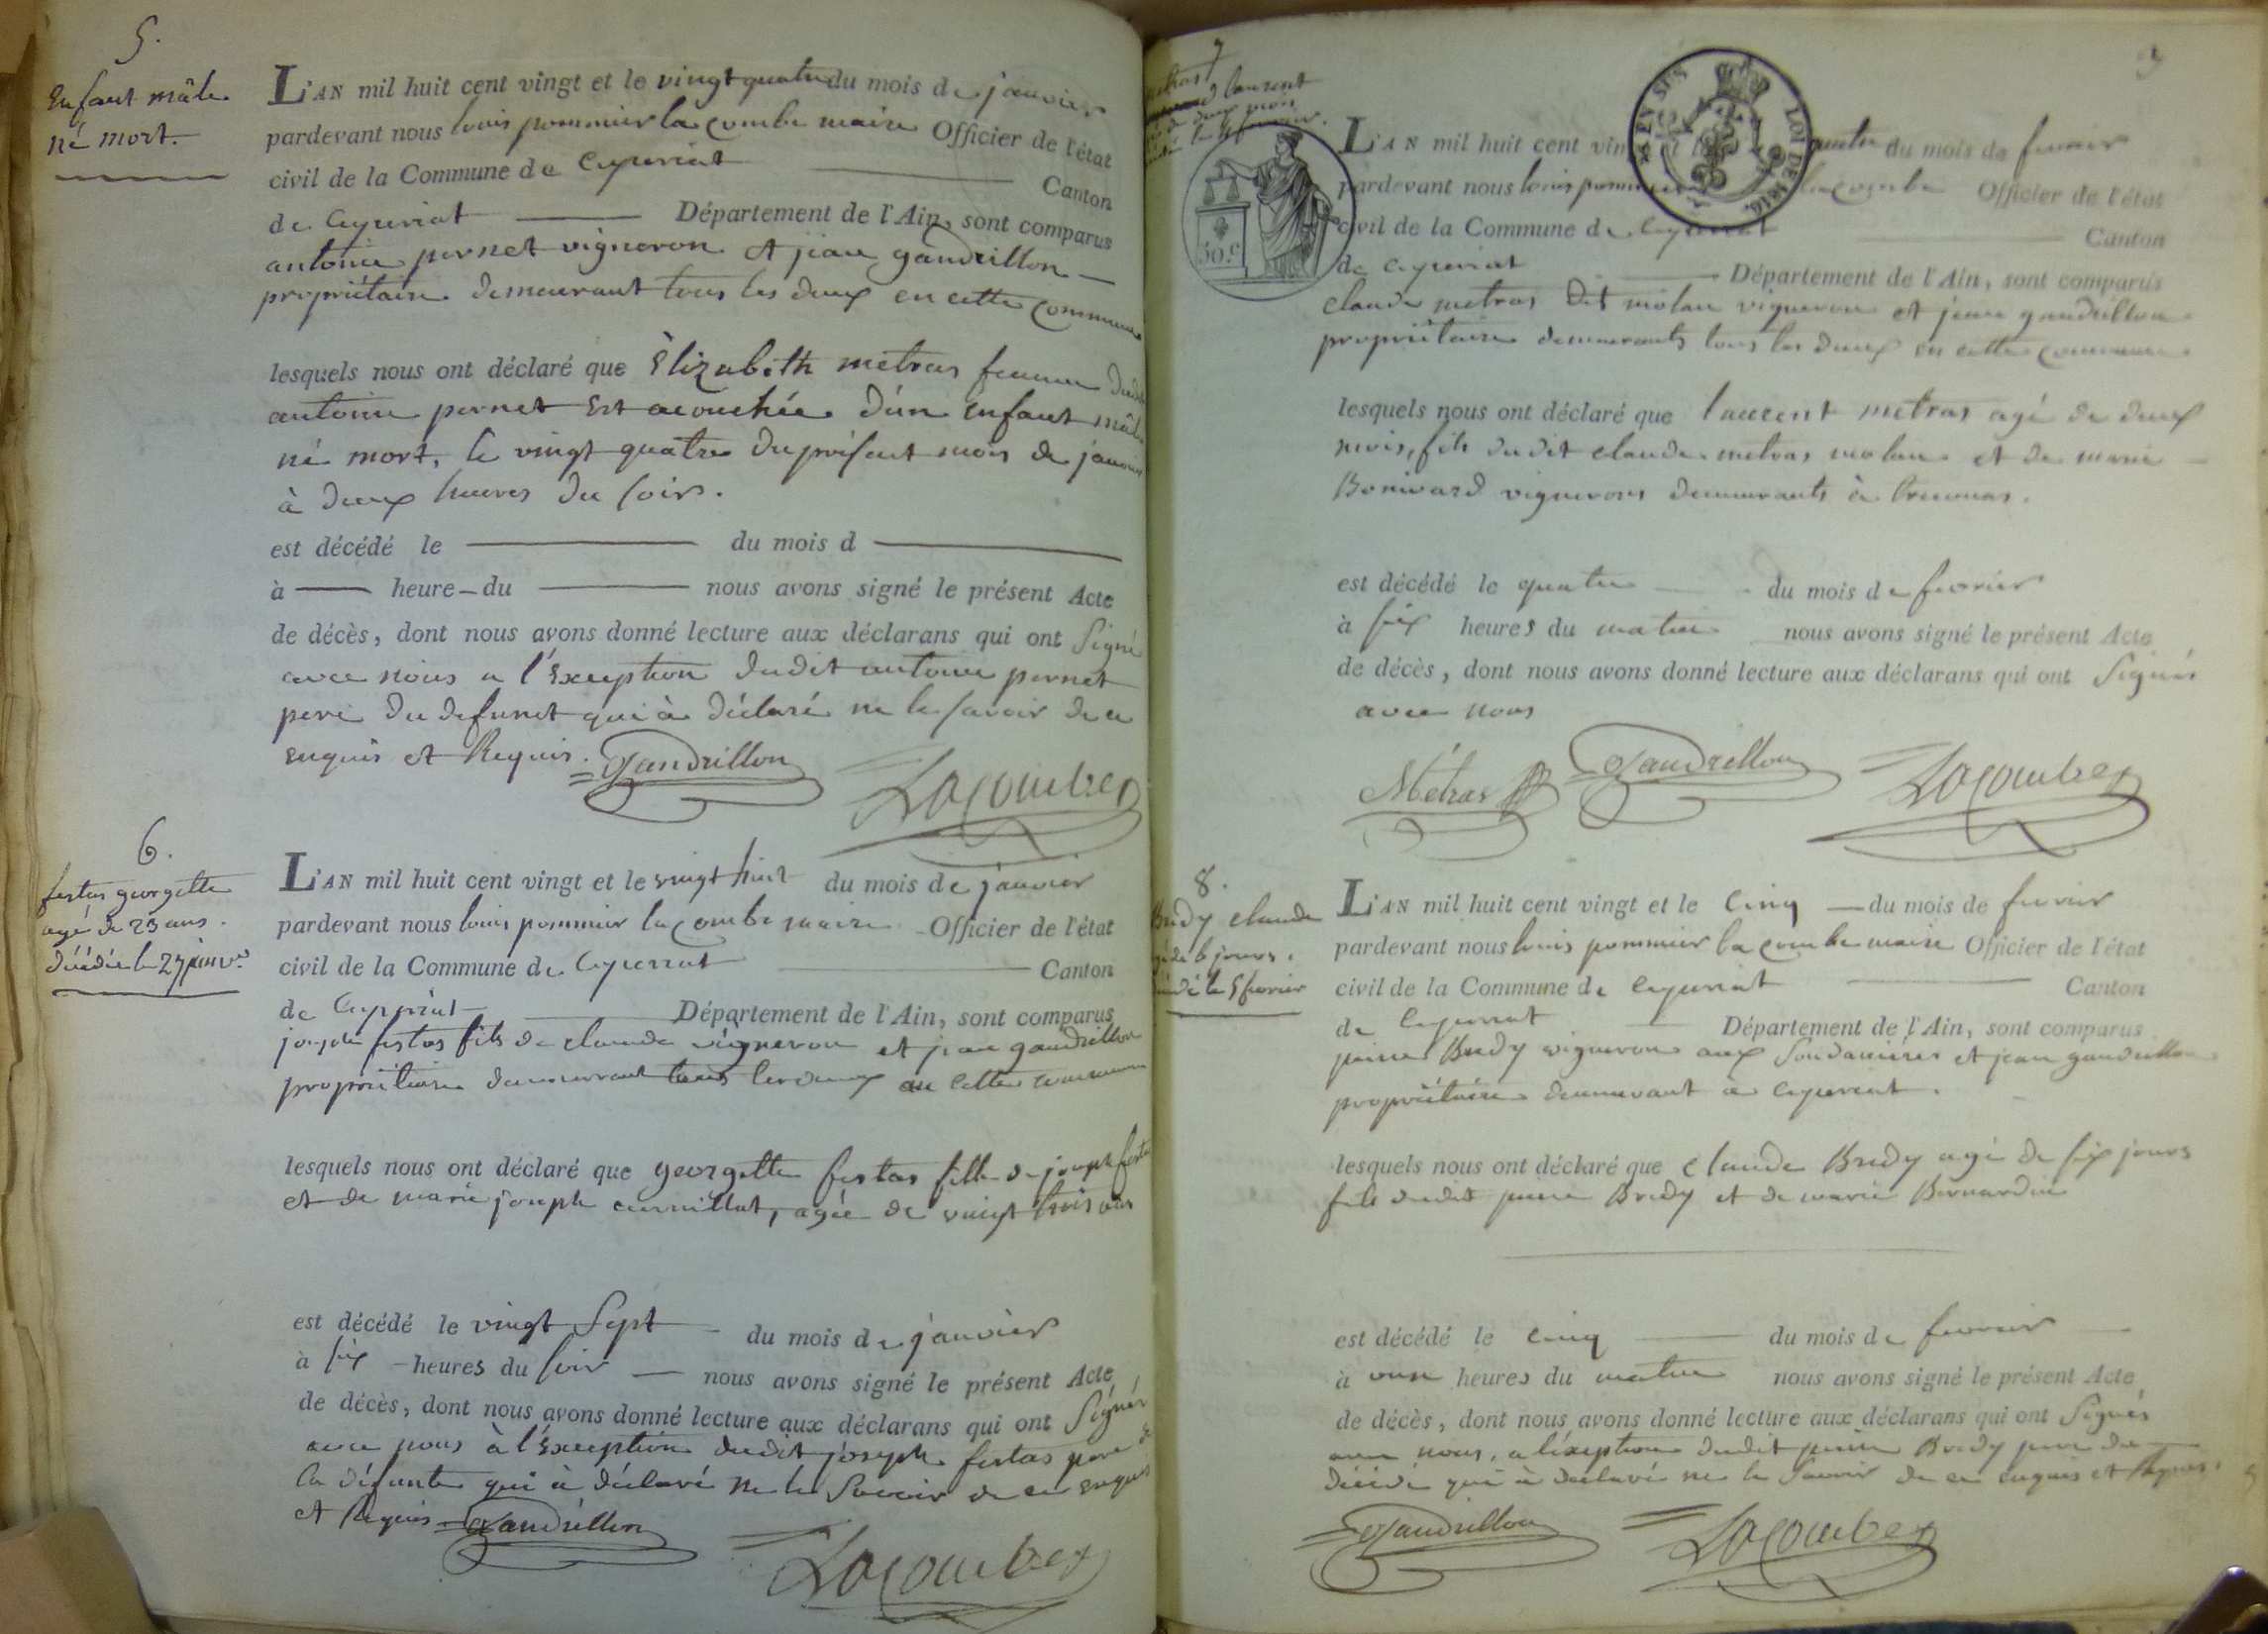 5.
Enfant mâle
né mort.
L'AN mil huit cent vingt et le vingt quatre du mois de janvier
pardevant nous louis pommier lacombe maire Officier de l'état
civil de la Commune de ceyzeriat Canton
de ceyzeriat Département de l'Ain, sont comparus
antoine pernet vigneron et jean gaudrillon
propriétaire demeurant tous les deux en cette commune
lesquels nous ont déclaré que Élizabeth metras femme dudit
antoine pernet est acouchée d'un enfant mâle
né mort, le vingt quatre du présent mois de janvier
à deux heures du soir.
est décédé le du mois d
à heure du nous avons signé le présent Acte
de décès, dont nous avons donné lecture aux déclarans qui ont Signé
avec nous a l'Exception dudit antoine pernet
pere du defunct qui à déclaré ne le savoir de ce
enquis et Requis. Gaudrillon
Lacombe
6.
festas georgette
agé de 23 ans.
décédée le 27 janv.
L'AN mil huit cent vingt et le vingt huit du mois de janvier
pardevant nous louis pommier lacombe maire Officier de l'état
civil de la Commune de ceyzeriat Canton
de Ceyzeriat Département de l'Ain, sont comparus
joseph festas fils de claude vigneron et jean gaudrillon
propriétaire demeurant tous les deux en cette commune
lesquels nous ont déclaré que georgette festas fille de joseph festas
et de marie joseph cuenillat, agée de vingt trois ans
est décédé le vingt Sept du mois de janvier
à six heures du soir nous avons signé le présent Acte
de décès, dont nous avons donné lecture aux déclarans qui ont Signés
avec nous à l'Exception dudit joseph festas pere de
la défunte qui à déclaré ne le Savoir de ce enquis
et Requis. Gaudrillon
Lacombe
7
metras laurent
de deux mois
le 4 fevrier.
50.C
LOI DE 1816.
L'AN mil huit cent vingt et le quatre du mois de fevrier
pardevant nous louis pommier lacombe Officier de l'état
civil de la Commune de Ceyzeriat Canton
de ceyzeriat Département de l'Ain, sont comparus
claude metras dit molan vigneron et jean gaudrillon
propriétaire demeurants tous les deux en cette commune
lesquels nous ont déclaré que laurent metras agé de deux
mois, fils dudit claude metras molan et de marie
Bonivard vignerons demeurants à
est décédé le quatre du mois de fevrier
à six heures du matin nous avons signé le présent Acte
de décès, dont nous avons donné lecture aux déclarans qui ont Signés
avec nous
Métras Gaudrillon Lacombe
8.
Bredy claude
agé de 6 jours.
décédé le 5 fevrier
L'AN mil huit cent vingt et le Cinq du mois de fevrier
pardevant nous louis pommier la combe maire Officier de l'état
civil de la Commune de ceyzeriat Canton
de Ceyzeriat Département de l'Ain, sont comparus
pierre Bredy vigneron aux Soudanières et jean gaudrillon
propriétaire demeurant à ceyzeriat.
lesquels nous ont déclaré que claude Bredy agé de six jours
fils dudit pierre Bredy et de marie Bernardin
est décédé le cinq du mois de fevrier
à onze heures du matin nous avons signé le présent Acte
de décès, dont nous avons donné lecture aux déclarans qui ont Signés
avec nous, a l'exeption dudit pierre Bredy pere du
décédé qui à declaré ne le Savoir de ce enquis et Requis.
Gaudrillon Lacombe